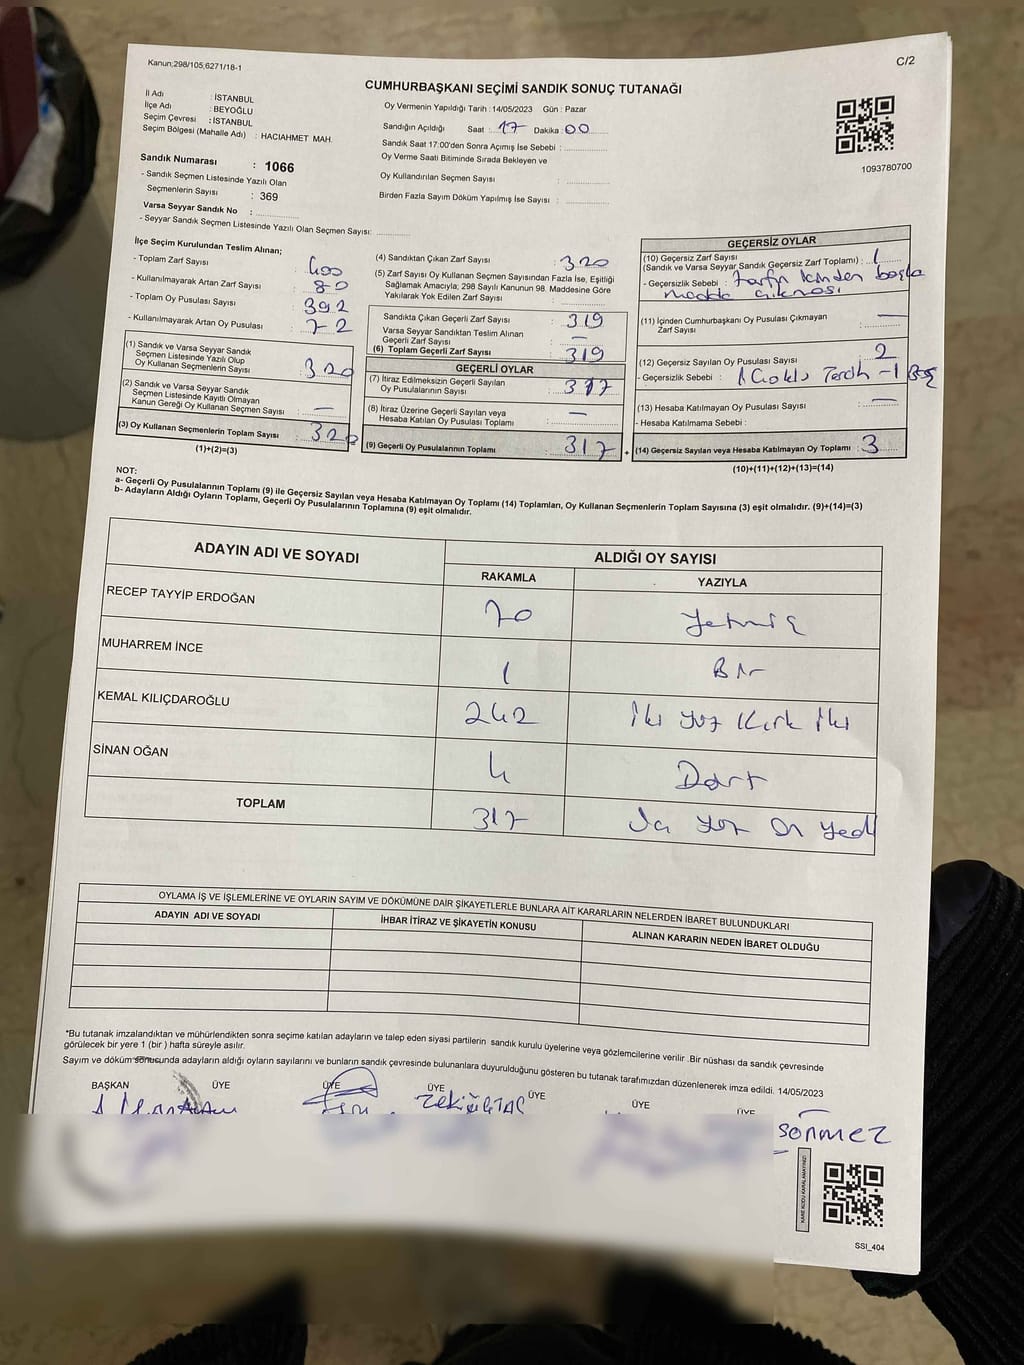 Kanun;298/105,6271/18-1
C/2
CUMHURBAŞKANI SEÇİMİ SANDIK SONUÇ TUTANAĞI
İl Adı : İSTANBUL
İlçe Adı : BEYOĞLU
Seçim Çevresi : İSTANBUL
Seçim Bölgesi (Mahalle Adı) : HACIAHMET MAH.
Sandık Numarası : 1066
- Sandık Seçmen Listesinde Yazılı Olan
Seçmenlerin Sayısı : 369
Varsa Seyyar Sandık No :
- Seyyar Sandık Seçmen Listesinde Yazılı Olan Seçmen Sayısı:
Oy Vermenin Yapıldığı Tarih :14/05/2023 Gün : Pazar
Sandığın Açıldığı Saat : 17 Dakika : 00
Sandık Saat 17:00'den Sonra Açımış İse Sebebi :
Oy Verme Saati Bitiminde Sırada Bekleyen ve
Oy Kullandırılan Seçmen Sayısı :
Birden Fazla Sayım Döküm Yapılmış İse Sayısı :
1093780700
İlçe Seçim Kurulundan Teslim Alınan;
- Toplam Zarf Sayısı : 400
- Kullanılmayarak Artan Zarf Sayısı : 80
- Toplam Oy Pusulası Sayısı : 392
- Kullanılmayarak Artan Oy Pusulası : 72
(1) Sandık ve Varsa Seyyar Sandık
Seçmen Listesinde Yazılı Olup
Oy Kullanan Seçmenlerin Sayısı : 320
(2) Sandık ve Varsa Seyyar Sandık
Seçmen Listesinde Kayıtlı Olmayan
Kanun Gereği Oy Kullanan Seçmen Sayısı : —
(3) Oy Kullanan Seçmenlerin Toplam Sayısı : 320
(1)+(2)=(3)
(4) Sandıktan Çıkan Zarf Sayısı : 320
(5) Zarf Sayısı Oy Kullanan Seçmen Sayısından Fazla İse, Eşitliği
Sağlamak Amacıyla; 298 Sayılı Kanunun 98. Maddesine Göre
Yakılarak Yok Edilen Zarf Sayısı :
Sandıkta Çıkan Geçerli Zarf Sayısı : 319
Varsa Seyyar Sandıktan Teslim Alınan
Geçerli Zarf Sayısı : —
(6) Toplam Geçerli Zarf Sayısı : 319
GEÇERLİ OYLAR
(7) İtiraz Edilmeksizin Geçerli Sayılan
Oy Pusulalarının Sayısı : 317
(8) İtiraz Üzerine Geçerli Sayılan veya
Hesaba Katılan Oy Pusulası Toplamı : —
(9) Geçerli Oy Pusulalarının Toplamı : 317 +
GEÇERSİZ OYLAR
(10) Geçersiz Zarf Sayısı
(Sandık ve Varsa Seyyar Sandık Geçersiz Zarf Toplamı) : 1
- Geçersizlik Sebebi : Zarfın içinden başka
madde çıkması
(11) İçinden Cumhurbaşkanı Oy Pusulası Çıkmayan
Zarf Sayısı : —
(12) Geçersiz Sayılan Oy Pusulası Sayısı : 2
- Geçersizlik Sebebi : 1 Çoklu Tercih - 1 Boş
(13) Hesaba Katılmayan Oy Pusulası Sayısı : —
- Hesaba Katılmama Sebebi :
(14) Geçersiz Sayılan veya Hesaba Katılmayan Oy Toplamı : 3
(10)+(11)+(12)+(13)=(14)
NOT:
a- Geçerli Oy Pusulalarının Toplamı (9) ile Geçersiz Sayılan veya Hesaba Katılmayan Oy Toplamı (14) Toplamları, Oy Kullanan Seçmenlerin Toplam Sayısına (3) eşit olmalıdır. (9)+(14)=(3)
b- Adayların Aldığı Oyların Toplamı, Geçerli Oy Pusulalarının Toplamına (9) eşit olmalıdır.
ADAYIN ADI VE SOYADI ALDIĞI OY SAYISI
RAKAMLA YAZIYLA
RECEP TAYYİP ERDOĞAN 70 Yetmiş
MUHARREM İNCE 1 Bir
KEMAL KILIÇDAROĞLU 242 İki Yüz Kırk İki
SİNAN OĞAN 4 Dört
TOPLAM 317 Üç Yüz On Yedi
OYLAMA İŞ VE İŞLEMLERİNE VE OYLARIN SAYIM VE DÖKÜMÜNE DAİR ŞİKAYETLERLE BUNLARA AİT KARARLARIN NELERDEN İBARET BULUNDUKLARI
ADAYIN ADI VE SOYADI İHBAR İTİRAZ VE ŞİKAYETİN KONUSU ALINAN KARARIN NEDEN İBARET OLDUĞU
*Bu tutanak imzalandıktan ve mühürlendikten sonra seçime katılan adayların ve talep eden siyasi partilerin sandık kurulu üyelerine veya gözlemcilerine verilir .Bir nüshası da sandık çevresinde
görülecek bir yere 1 (bir ) hafta süreyle asılır.
Sayım ve döküm sonucunda adayların aldığı oyların sayılarını ve bunların sandık çevresinde bulunanlara duyurulduğunu gösteren bu tutanak tarafımızdan düzenlenerek imza edildi. 14/05/2023
BAŞKAN ÜYE ÜYE ÜYE ÜYE ÜYE ÜYE
sönmez
KARE KODU KARALAMAYINIZ!
SSI_404